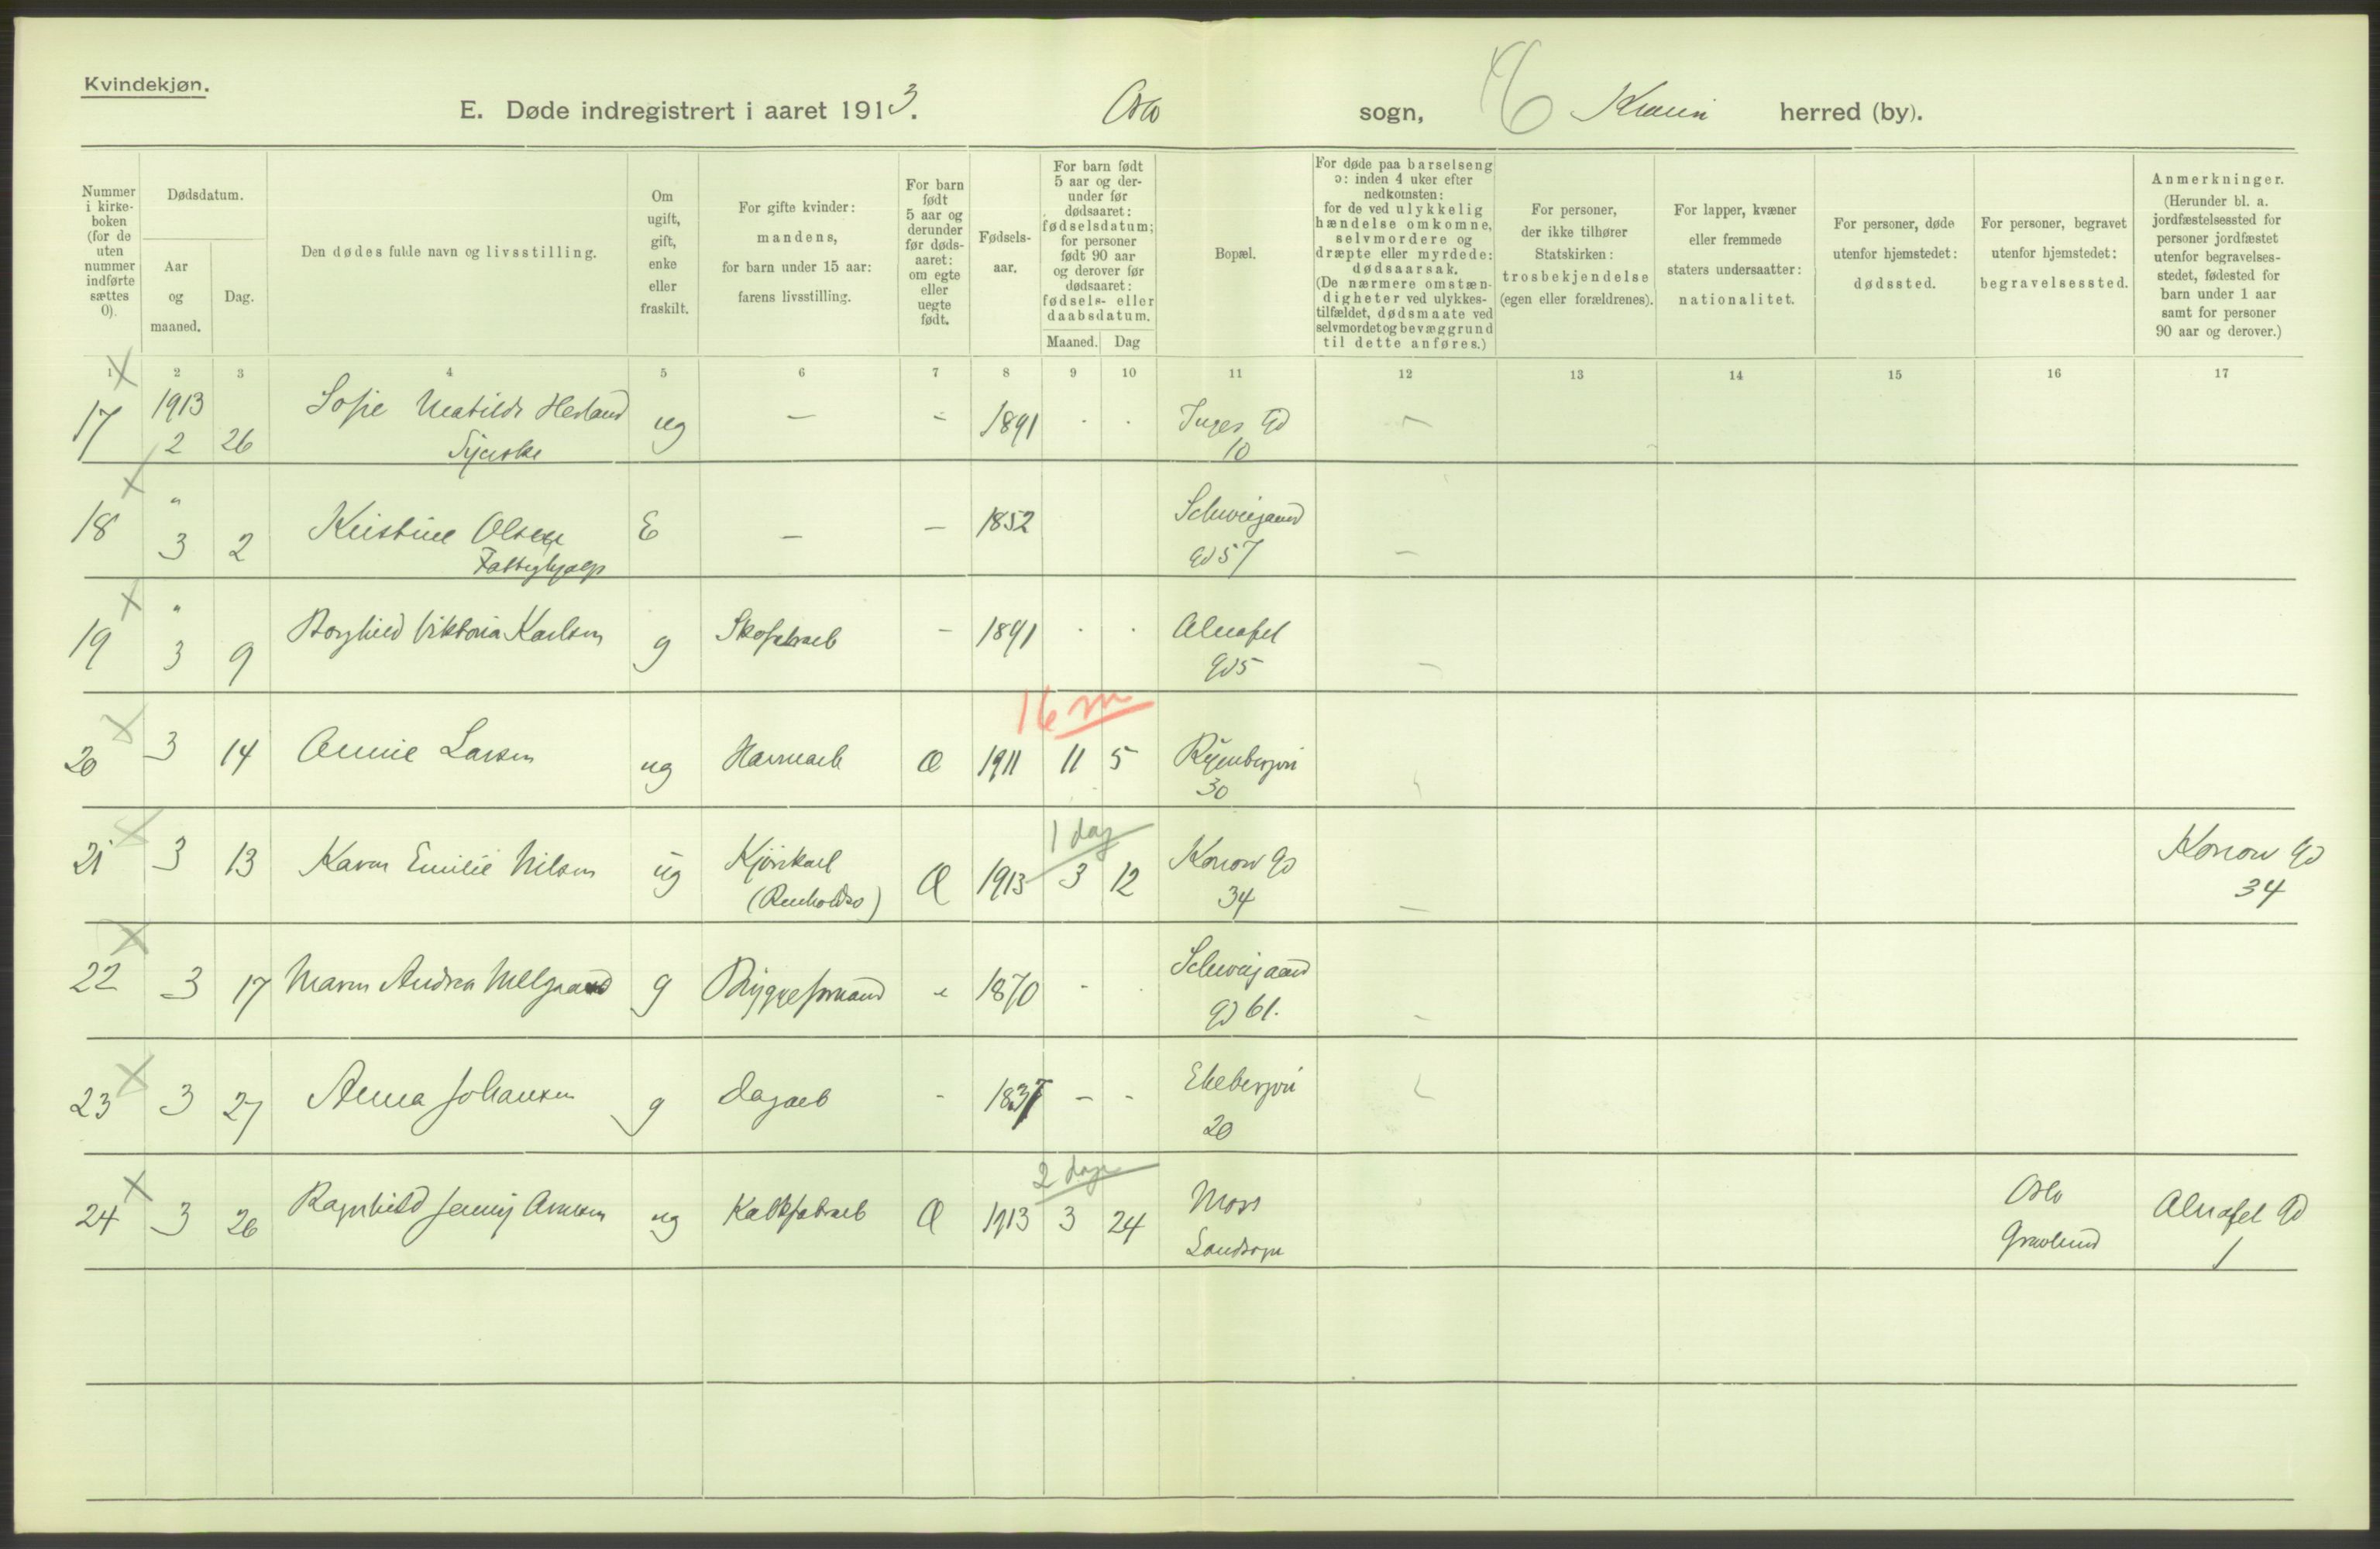 Kvindekjøn.
E. Døde indregistrert i aaret 1913. Oslo sogn, herred (by).
Nummer i kirke-boken (for de uten nummer indførte sættes 0).
Dødsdatum.
Aar og maaned.
Dag.
Den dødes fulde navn og livsstilling.
Om ugift, gift, enke eller fraskilt.
For gifte kvinder: mandens, for barn under 15 aar: farens livsstilling.
For barn født 5 aar og derunder før døds-aaret: om egte eller uegte født.
Fødsels-aar.
For barn født 5 aar og der-under før dødsaaret: fødselsdatum; for personer født 90 aar og derover før dødsaaret: fødsels- eller daabsdatum.
Maaned. Dag
Bopæl.
For døde paa barselseng ɔ: inden 4 uker efter nedkomsten: for de ved ulykkelig hændelse omkomne, selvmordere og dræpte eller myrdede: dødsaarsak. (De nærmere omstæn-digheter ved ulykkes-tilfældet, dødsmaate ved selvmordet og bevæggrund til dette anføres.)
For personer, der ikke tilhører Statskirken: trosbekjendelse (egen eller forældrenes).
For lapper, kvæner eller fremmede staters undersaatter: nationalitet.
For personer, døde utenfor hjemstedet: dødssted.
For personer, begravet utenfor hjemstedet: begravelsessted.
Anmerkninger. (Herunder bl. a. jordfæstelsessted for personer jordfæstet utenfor begravelses-stedet, fødested for barn under 1 aar samt for personer 90 aar og derover.)
1 2 3 4 5 6 7 8 9 10 11 12 13 14 15 16 17
17 1913 2 26 Sofie Matilde ug — - 1891 Inges Gd 10
Syerske
18 " 3 2 Kristine Olsen E — - 1852 Schweigaard Gd 57
Fattighjælp
19 " 3 9 Borghild Viktoria Karlsen g Skofabrarb - 1891 Alnafet Gd 5
16 m
20 3 14 Annie Larsen ug Havnearb Æ 1911 11 5 Ryenbergvei 30
1 dag
21 3 13 Karen Emilie Nilsen ug Kjørekarl (Renholds) Æ 1913 3 12 Konow Gd 34 Konow Gd 34
22 3 17 Maren Andrea Melgaard g Bryggeformand 1870 Schweigaard Gd 61.
23 3 27 Anna Johansen g Dagarb - 1837 - - Ekebergvei 20
2 dage
24 3 26 Ragnhild Jenny ug Kalkfabrarb Æ 1913 3 24 Moss Landsogn Oslo Gravlund Alnafet Gd 1